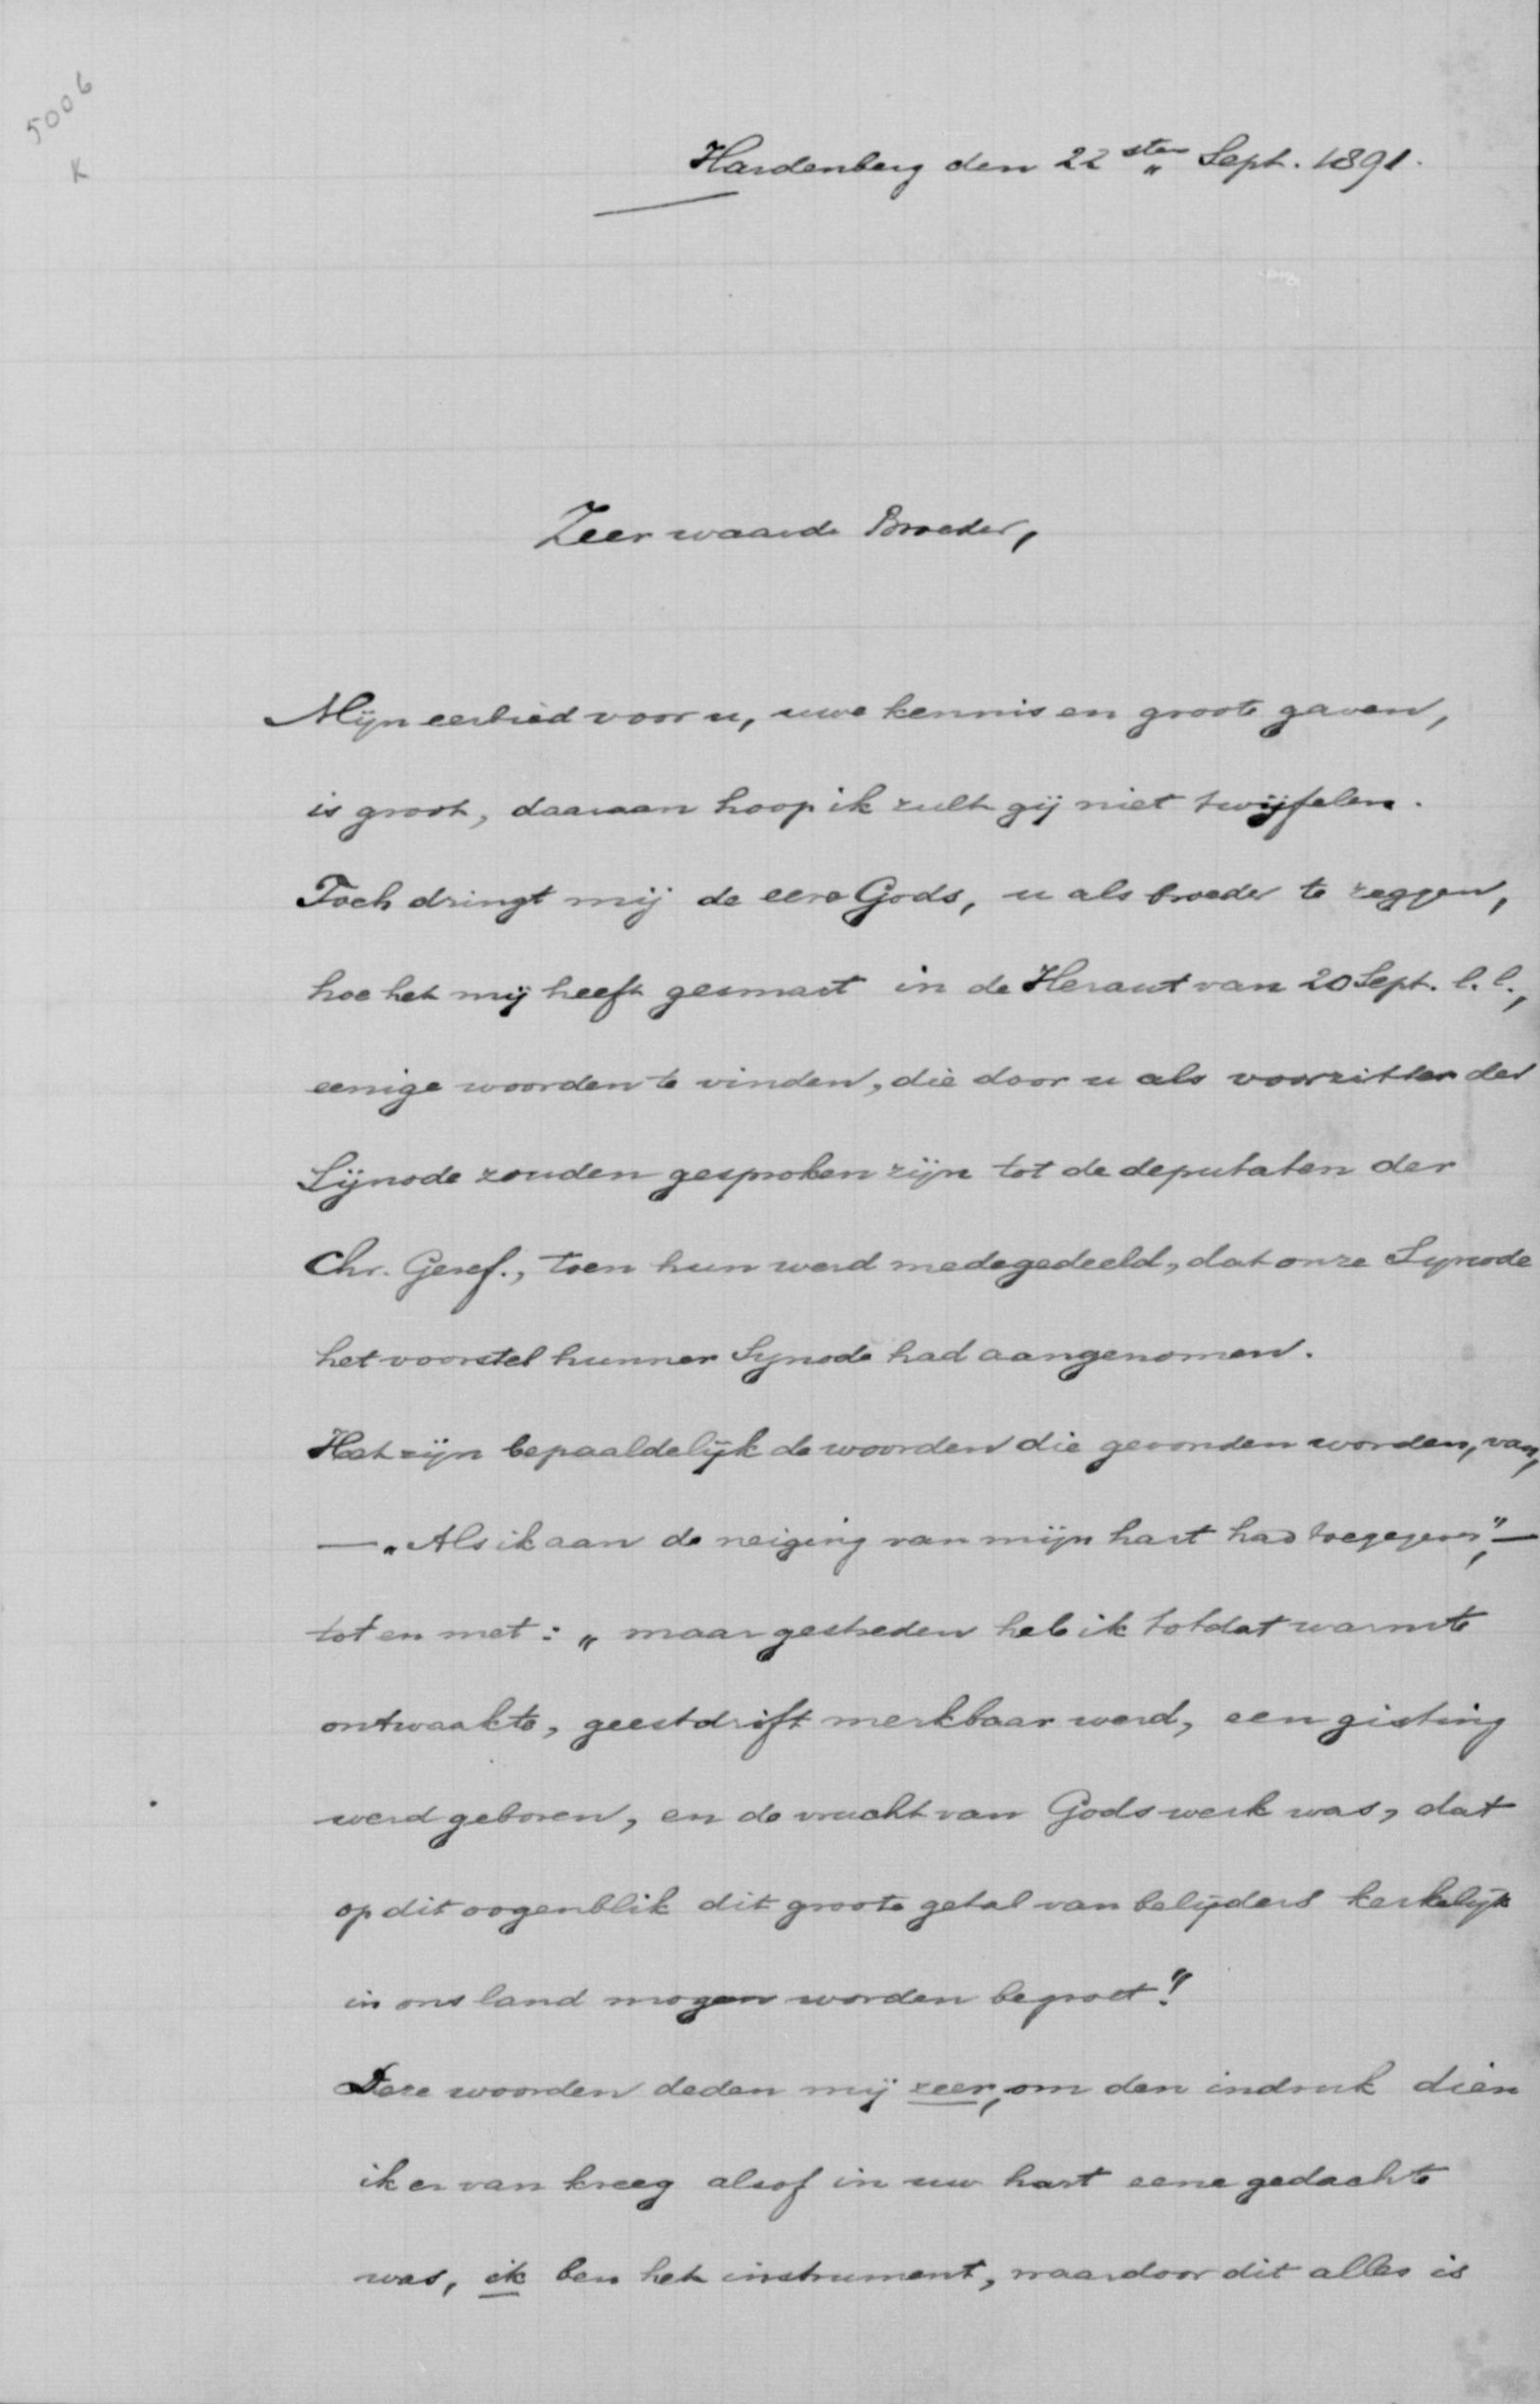 5006
K
Hardenberg den 22 sten Sept. 1891.
Zeer waarde Broeder,
Mijn eerbied voor u, uwe kennis en groote gaven,
is groot, daaraan hoop ik zult gij niet twijfelen.
Toch dringt mij de eere Gods, u als broeder te zeggen,
hoe het mij heeft gesmart in de Heraut van 20 Sept. l.l.,
eenige woorden te vinden, die door u als voorzitter der
Sijnode zouden gesproken zijn tot de deputaten der
Chr. Geref., toen hun werd medegedeeld, dat onze Synode
het voorstel hunner Synode had aangenomen.
Het zijn bepaaldelijk de woorden die gevonden worden, van,
— „Als ik aan de neiging van mijn hart had toegegeven", —
tot en met: „maar gestreden heb ik totdat warmte
ontwaakte, geestdrift merkbaar werd, een gisting
werd geboren, en de vrucht van Gods werk was, dat
op dit oogenblik dit groote getal van belijders kerkelijk
in ons land mogen worden begroet!"
Deze woorden deden mij zeer, om den indruk dien
ik er van kreeg alsof in uw hart eene gedachte
was, ik ben het instrument, waardoor dit alles is